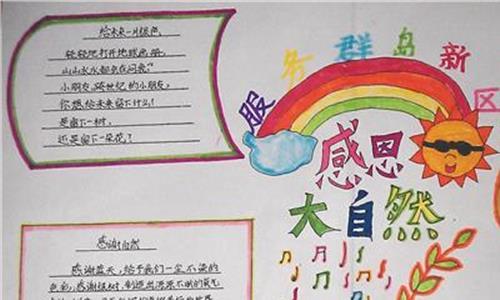 给未来一片绿色
轻轻地打开地球画册,
山山水水都在问我:"
小朋友,跨世纪的小朋友,
你想给未来留下什么!
是留下一树,
还是留下一朵花?
服务群岛新区
感恩
大自然
感谢自然
感谢蓝天,给予我们一尘不染的
色彩,感谢绿树,制造出源源不断的氧气